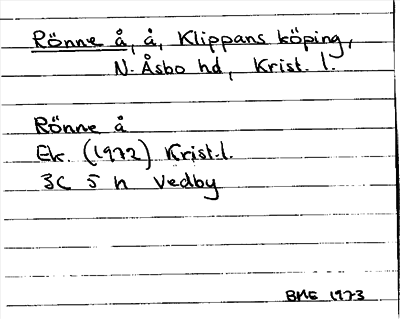 Rönne å, å, Klippans köping,
N. Åsbo hd, Krist. l.
Rönne å
Ek. (1972) Krist.l.
3C 5 h Vedby
BME 1973